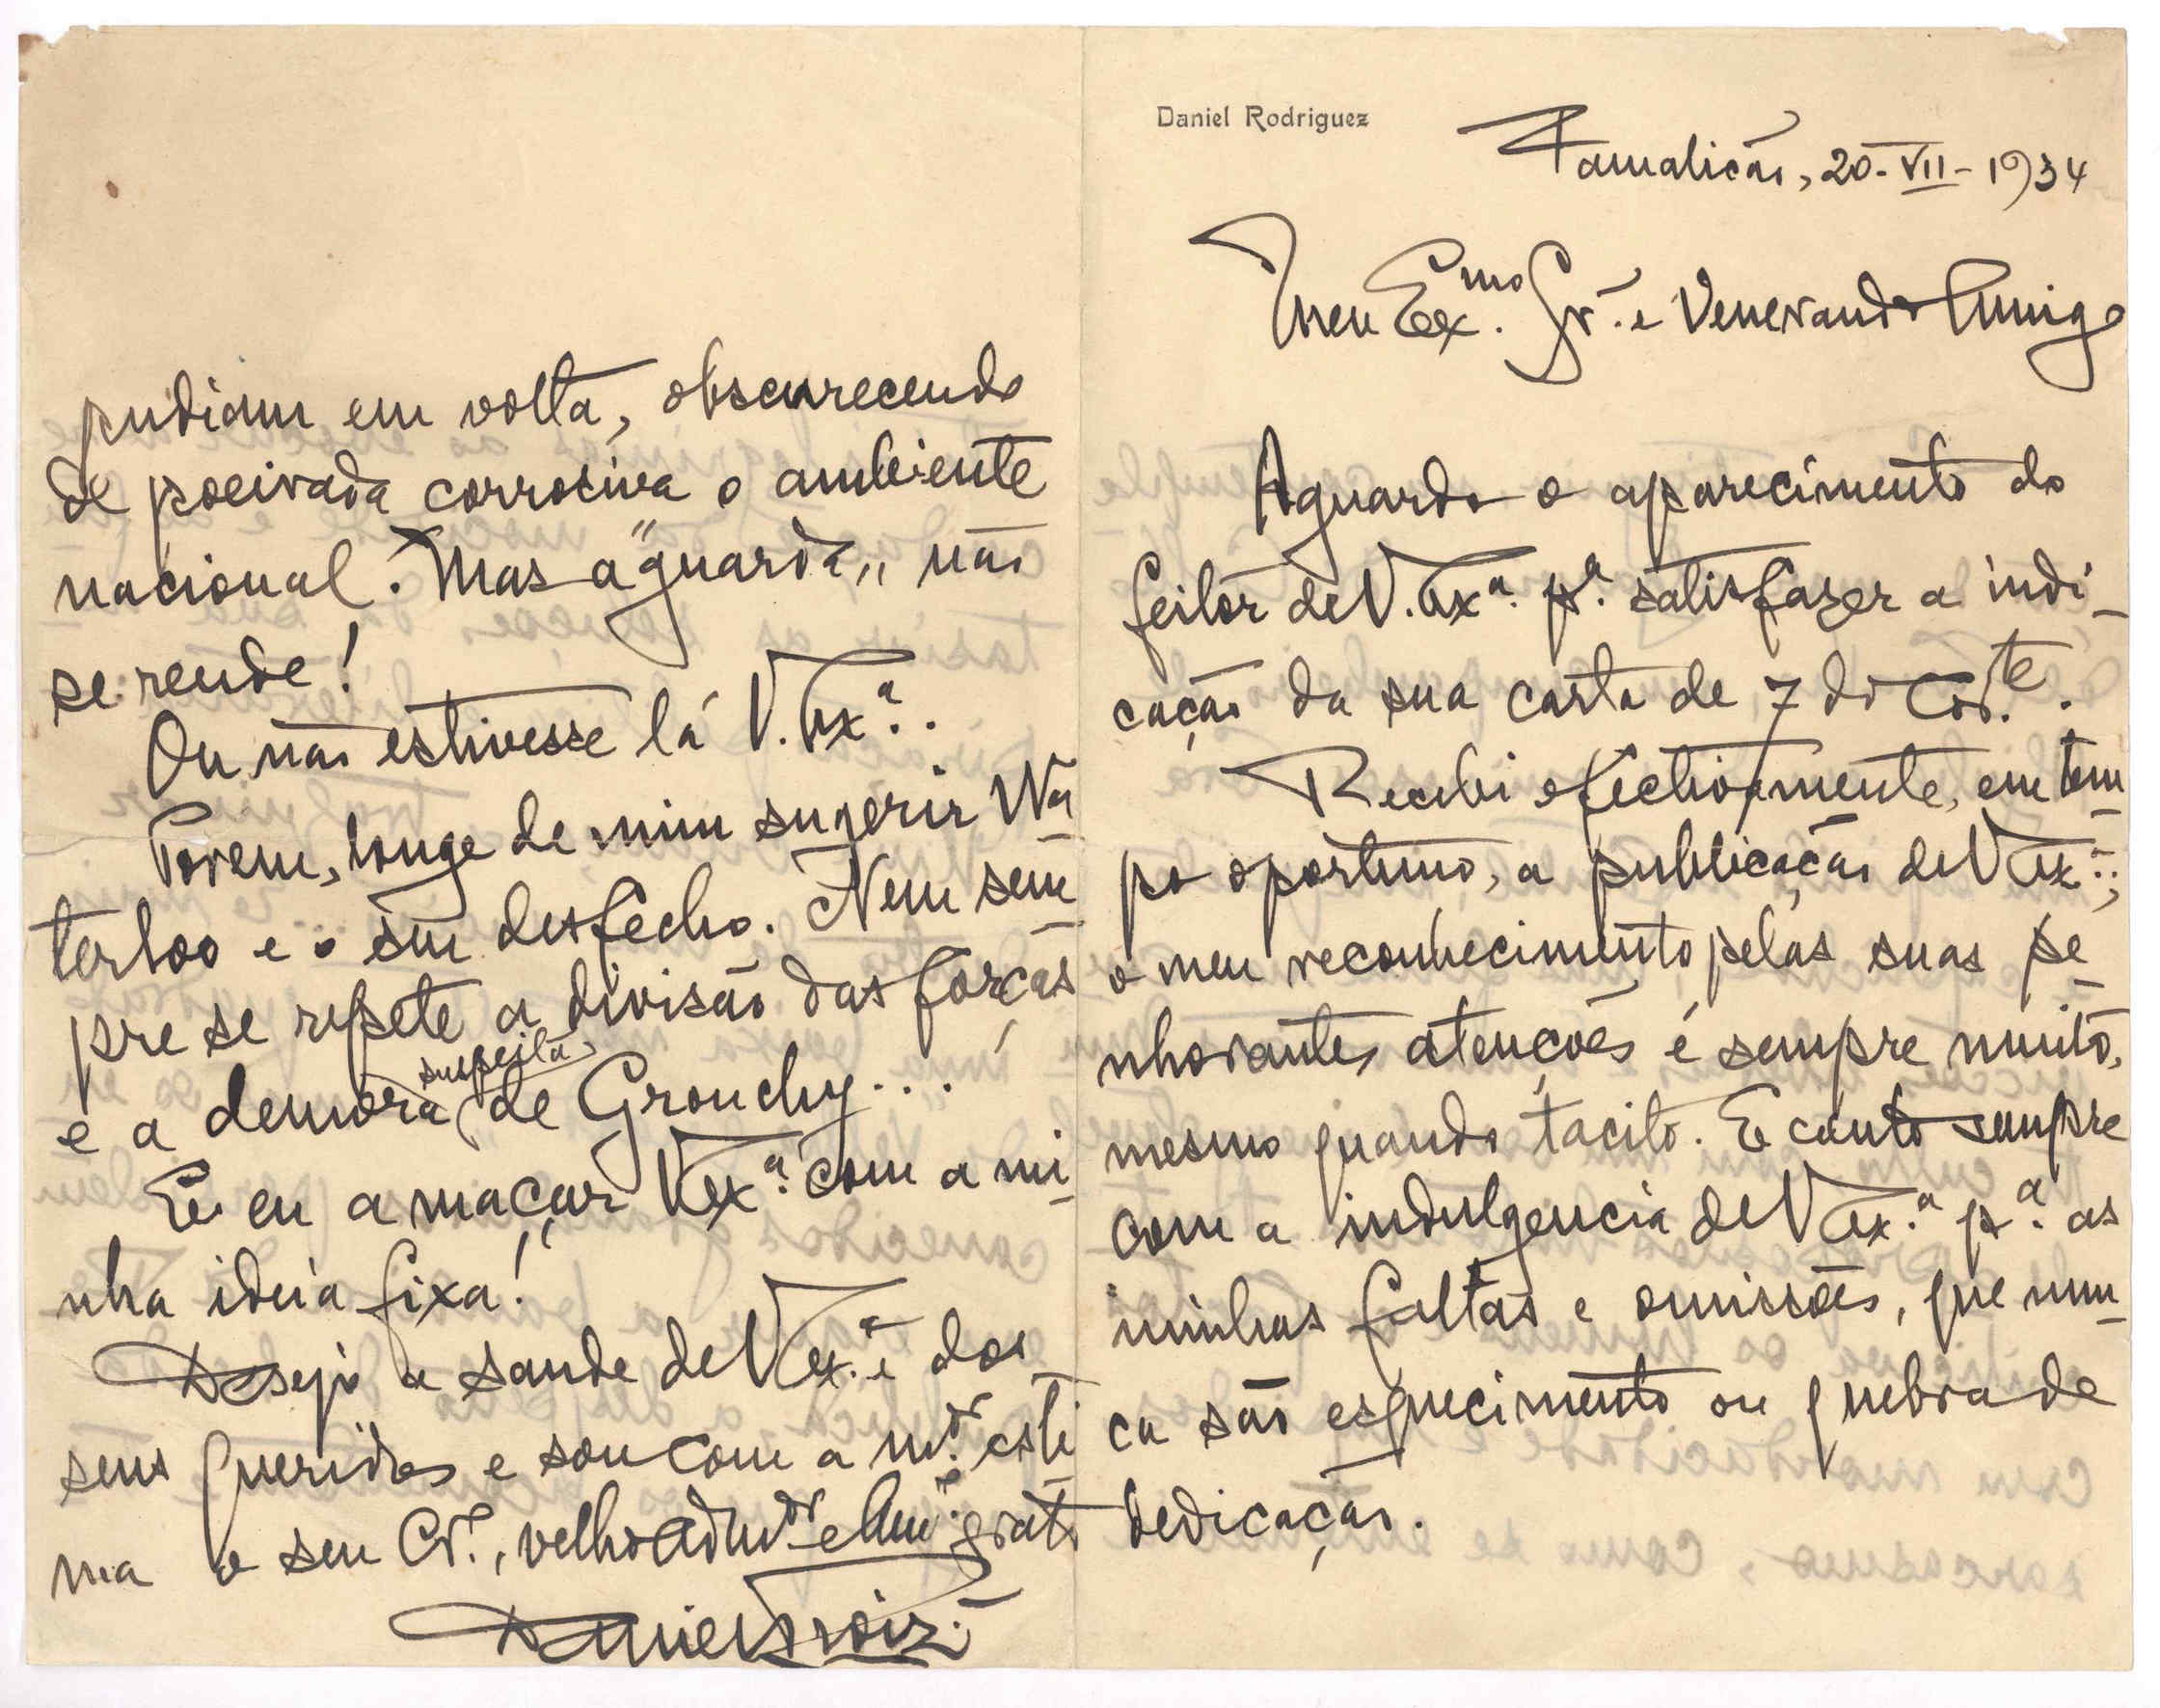 Daniel Rodriguez
Famalicão, 20-VII-1934
Meu Ex.mo Sr. e Venerando Amigo
Aguardo o aparecimento do
feitor de V. Ex.a p.a satisfazer a indi-
cação da sua carta de 7 do cor.te.
Recebi efectivamente, em tem-
po oportuno, a publicação de V Ex.a;
o meu reconhecimento pelas suas pe-
nhorantes atenções é sempre muito,
mesmo quando tacito. E conto sempre
com a indulgencia de V Ex.a p.a as
minhas faltas e omissões, que nun-
ca são esquecimento ou quebra de
dedicação.
pudiam em volta, obscurecendo
de poeirada corrosiva o ambiente
nacional. Mas a "guarda" não
se rende!
Ou não estivesse lá V. Ex.a.
Porem, longe de mim sugerir Wa-
terloo e o seu desfecho. Nem sem-
pre se repete a divisão das forças
e a demora suspeita de Grouchy...
E eu a maçar V Ex.a com a mi-
nha ideia fixa!
Desejo a saude de V Ex.a e dos
seus queridos e sou com a m.or esti-
ma o seu Cr.o, velho adm.dor e Am.o grato
Daniel Roiz.